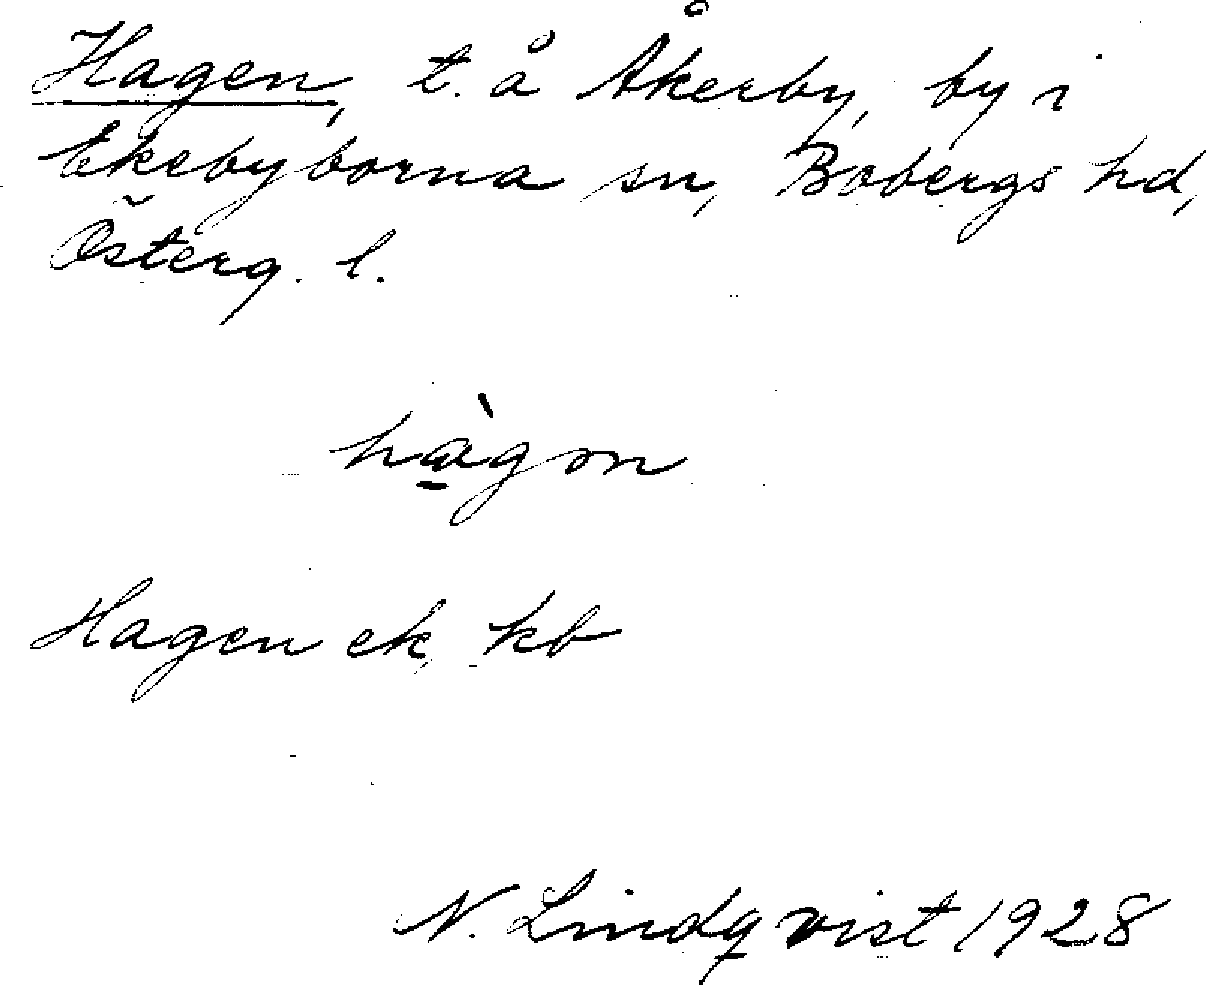 Hagen, t. å Åkerby, by i
Ekebyborna sn, Bobergs hd,
Österg. l.
hàgon
Hagen ek, kb
N. Lindqvist 1928